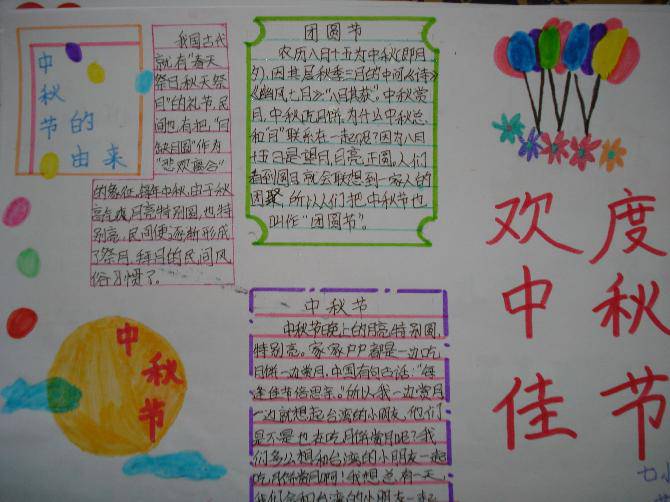 中
秋
节的
由来
我国古代
就有“春天
祭日,秋天祭
月”的礼节,民
间也有把“月
缺月圆”作为
“悲欢离合”
的象征,每年中秋,由于秋
高气爽月亮特别圆,也特
别亮,民间便逐渐形成
了祭月、拜月的民间风
俗习惯了。
团圆节
农历八月十五为中秋(即月
夕),因其居秋季三月的中间《诗》
《豳风七月》:“八月其获”。中秋赏
月,中秋吃月饼,为什么中秋总
和“月”联系在一起呢?因为八月
十五日是望月,月亮正圆,人们
看到圆月就会联想到一家人的
团聚,所以人们把中秋节也
叫作“团圆节”。
中秋节
中秋节晚上的月亮特别圆,
特别亮。家家户户都是一边吃
月饼一边赏月,中国有句古话:“每
逢佳节倍思亲。”所以我一边赏月
一边就想起台湾的小朋友,他们
是不是也在吃月饼赏月呢?我
们多么想和台湾的小朋友一起
吃月饼赏月啊!我想总有一天,
我们会和台湾的小朋友一起
中
秋
节
欢度
中秋
佳节